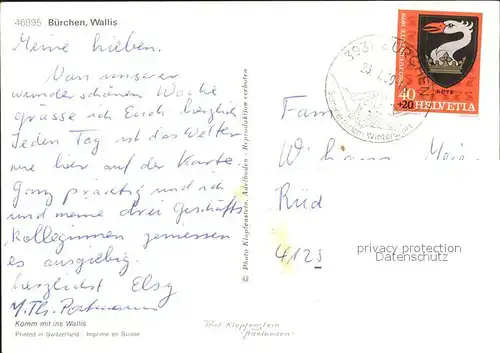 46995 Bürchen, Wallis
Meine lieben.
Von unserer
wunderschönen Woche
grüsse ich Euch herzlich
Jeden Tag ist das Wetter
wie hier auf der Karte.
Ganz prächtig und ich
und meine drei Geschäfts
kolleginnen geniessen
es ausgiebig.
herzlichst Elsy
M. Th. Portmann
Komm mit ins Wallis
Printed in Switzerland · Imprimé en Suisse
© Photo Klopfenstein, Adelboden - Reproduktion verboten
Phot. Klopfenstein
Adelboden
BÜRCHEN
40
+20 HELVETIA
Fam
Rüd
4125
privacy protection
Datenschutz